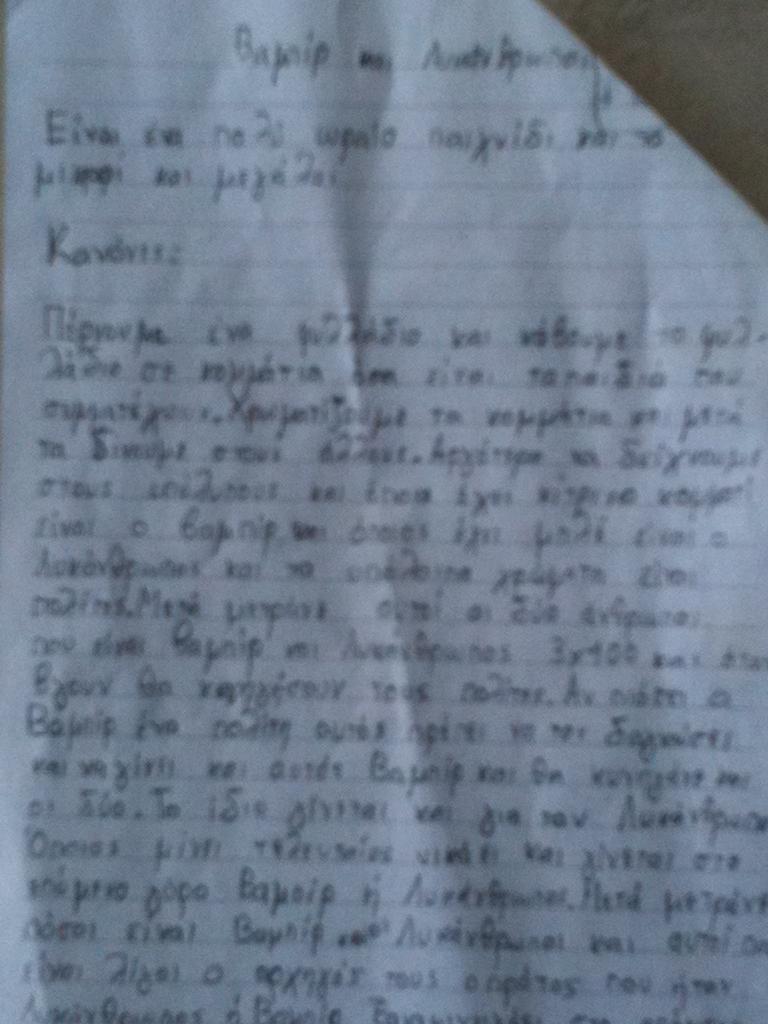 Βαμπίρ και Λυκάνθρωποι
Είναι ένα πολύ ωραίο παιχνίδι και το
μικροί και μεγάλοι
Κανόνες:
Πέρνουμε ένα φυλλάδιο και κόβουμε το φυλ-
λάδιο σε κομμάτια όσα είναι τα παιδιά που
συμματέχουν. Χρωματίζουμε τα κομμάτια και μετά
τα δίνουμε στους άλλους. Αργότερα τα δείχνουμε
στους υπόλυπους και όποιος έχει κίτρινο κομμάτι
είναι ο Βαμπίρ και όποιος έχει μπλέ είναι ο
Λυκάνθρωπος και τα υπόλοιπα χρώματα είναι
πολίτες. Μετά μετράνε αυτοί οι δύο άνθρωποι
που είναι Βαμπίρ και Λυκάνθρωπος 3x100 και όταν
βγουν θα κυνηγήσουν τους πολίτες. Αν πιάσει ο
Βαμπίρ ένα πολίτη αυτός πρέπει να τον δαγκώσει
και να γίνει και αυτός Βαμπίρ και θα κυνηγάνε και
οι δύο. Το ίδιο γίνεται και για τον Λυκάνθρωπο
Όποιος μείνει τελευταίος νικάει και γίνεται στο
επόμενο γύρο Βαμπίρ ή Λυκάνθρωπος. Μετά μετράνε
πόσοι είναι Βαμπίρ και Λυκάνθρωποι και αυτοί που
είναι λίγοι ο αρχηγός τους ο πρώτος που ήταν
Λυκάνθρωπος ή Βαμπίρ